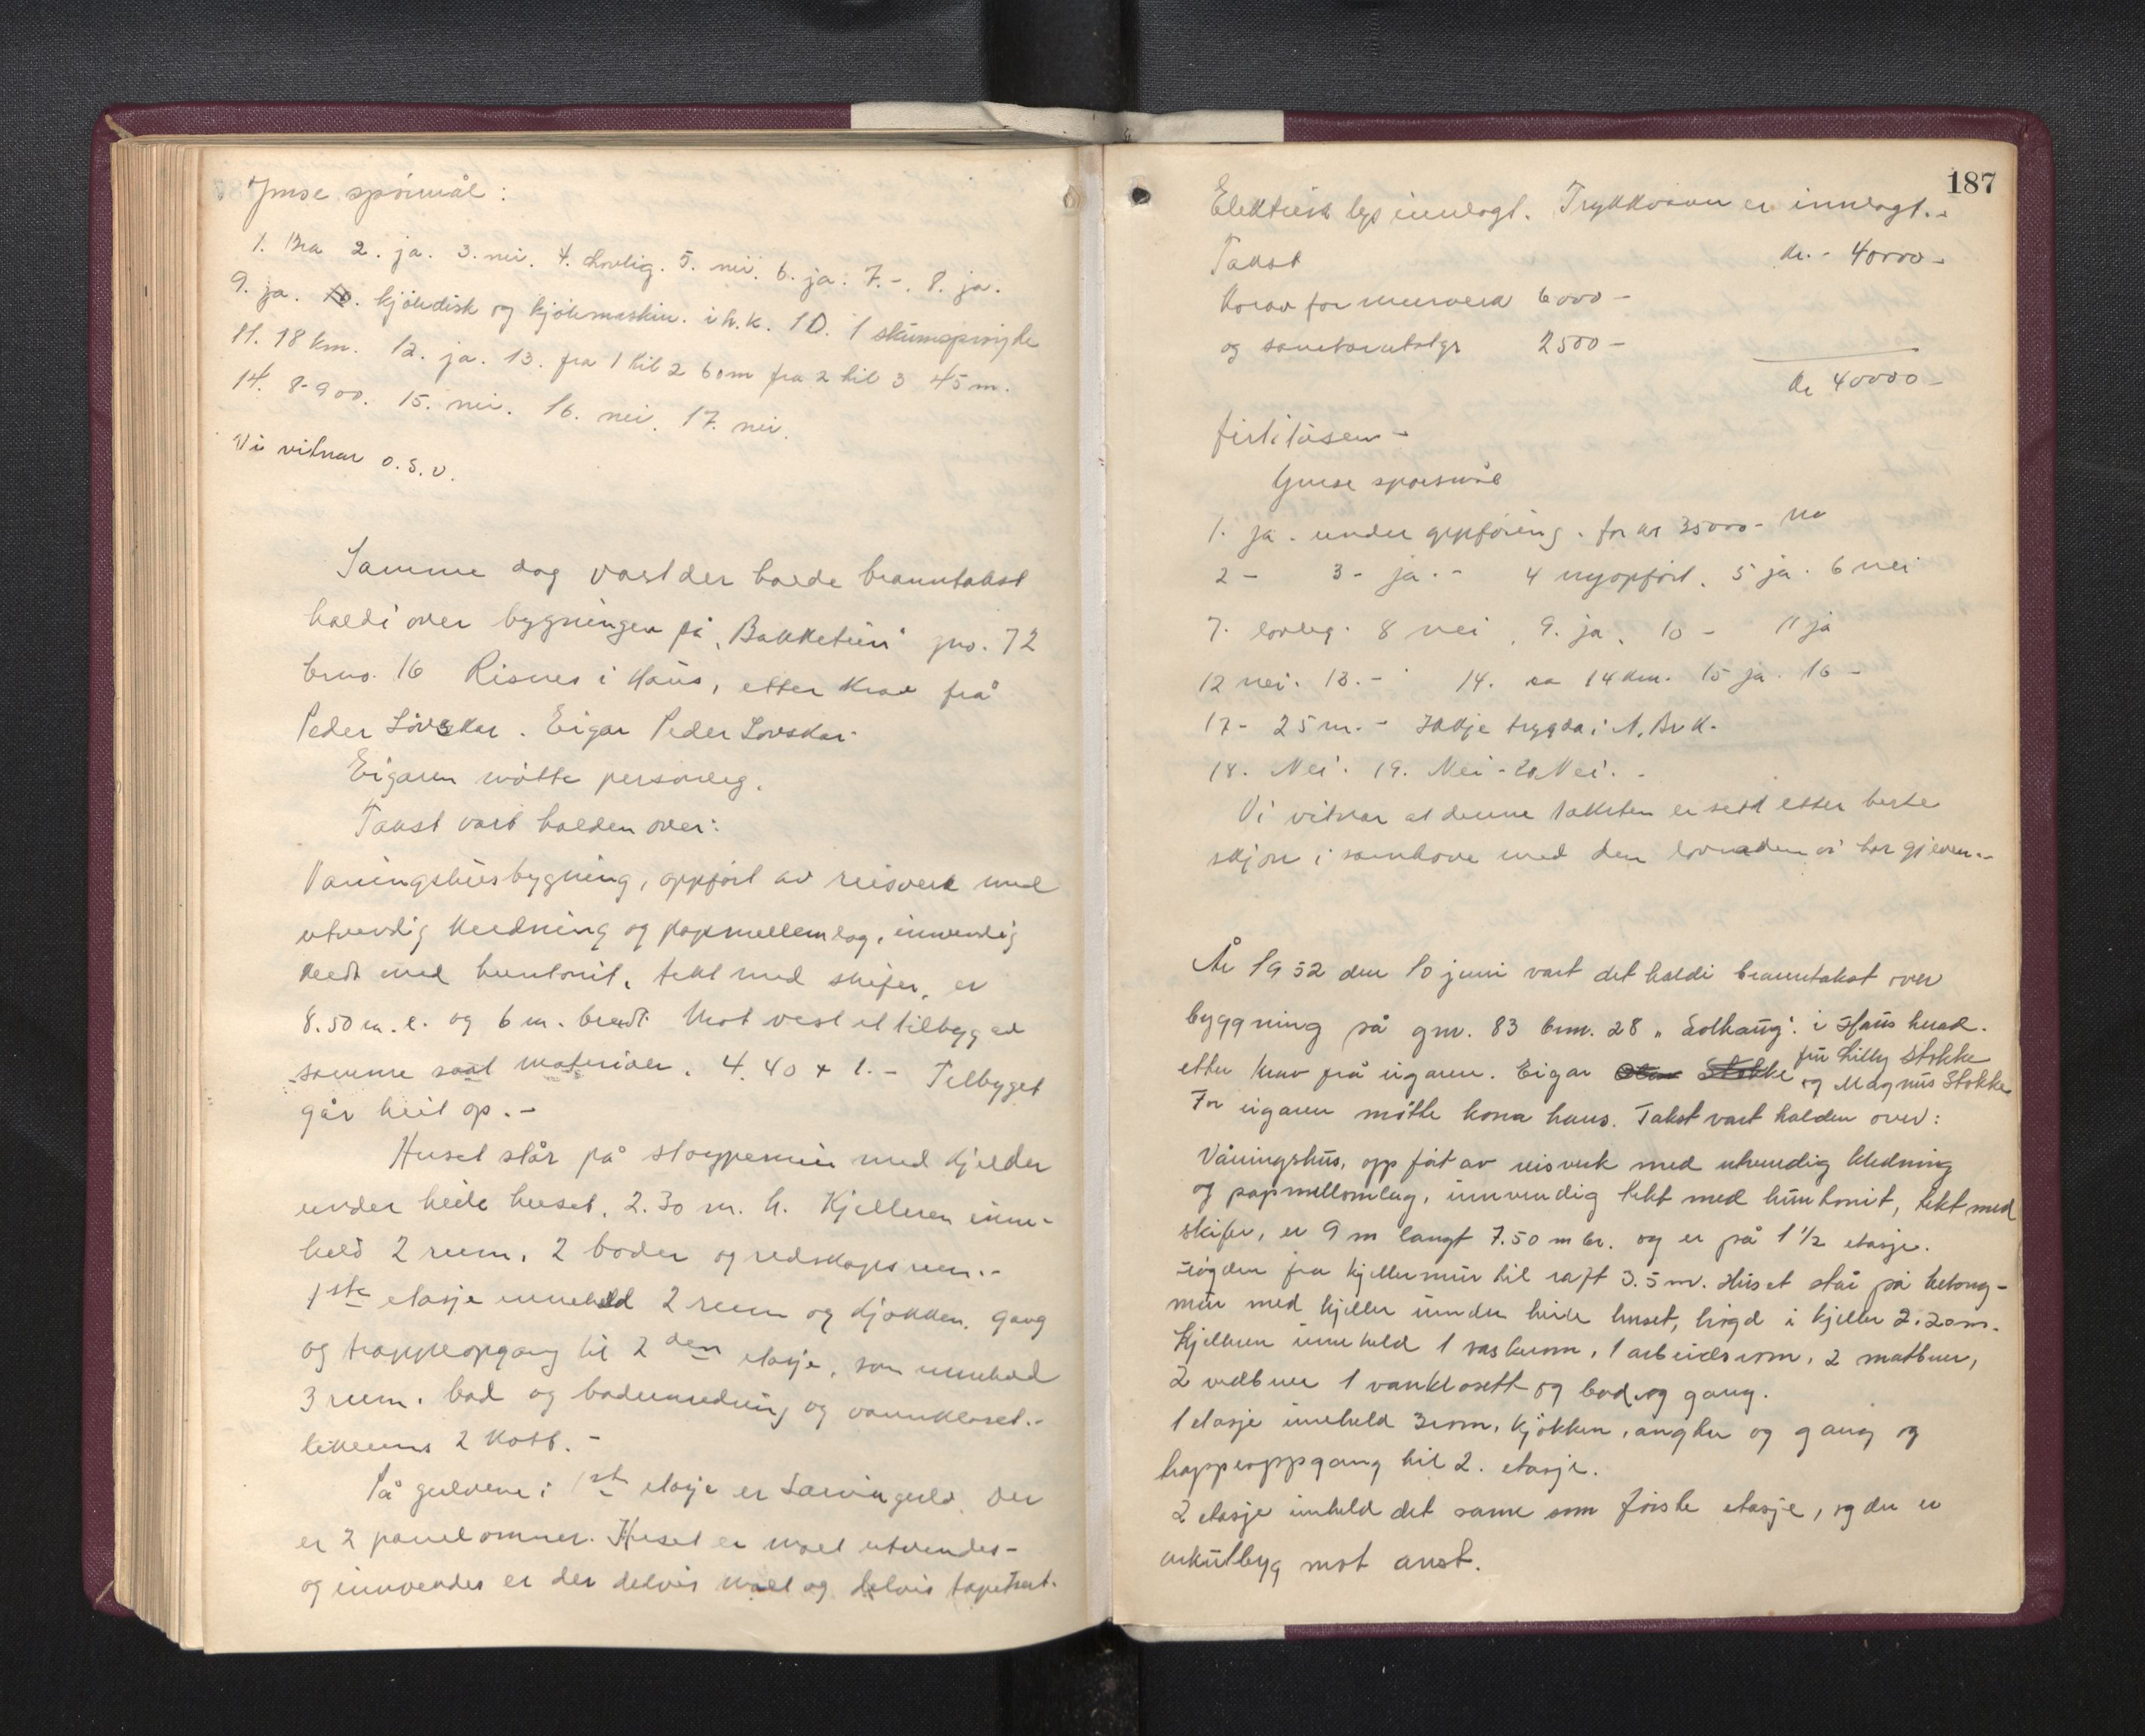 Ymse spörsmål:
1. Bra 2. ja. 3. nei. 4. Lovlig. 5. nei. 6. ja. 7. -. 8. ja.
9. ja. 10. kjöledisk og kjölemaskin. i h.k. 1 D. 1 skumspröyte
11. 18 km. 12. ja. 13. fra 1 til 2 60m fra 2 til 3 45 m.
14. 8-900. 15. nei. 16. nei. 17. nei.
Vi vitnar o.s.v.
Samme dag vart der halde branntakst
haldi over bygningen på "Bakketun" gno. 72
brno. 16 Risnes i Haus, etter krav frå
Peder Lövskar. Eigar Peder Lövskar.
Eigaren mötte personleg.
Takst vart halden over:
Våningshusbygning, oppfört av reisverk med
utvendig kledning og papmellemlag, innvendig
kledt med huntonit, tekt med skifer, er
8.50 m. l. og 6 m. bredt. Mot vest et tilbygg av
samme slags materialer. 4.40 x 1.- Tilbygget
går heil op.-
Huset står på stöypemur med kjelder
under heile huset. 2.30 m. h. Kjelleren inne-
held 2 rum, 2 boder og redskapsrum.-
1ste etasje inneheld 2 rum og kjökken, gang
og trappeopgang til 2den etasje, som inneheld
3 rum, bad og badeinredning og vannkloset.-
likeens 2 kott.-
På gulvene i 1ste etasje er Larvingulv. Der
er 2 panelomner. Huset er malt utvendes-
og innvendes er der delvis malt og delvis tapetsert.
187
Elektrisk lys innlagt. Trykkvann er innlagt.-
Takst kr.- 40000-
Herav for murverk 6000-
og sanitæranlegg 2500-
kr 40000-
firti tusen-
Ymse spörsmål
1. Ja. under oppföring. for kr 35000- No
2 - 3 - ja.- 4 nyoppfört. 5 ja. 6 nei
7. lovleg. 8 nei. 9. ja. 10 - 11 ja
12 nei. 13.- 14. ca 14 km. 15 ja. 16 -
17 - 25 m.- Ikkje trygda i N. Br. K.
18. Nei. 19. Nei - 20 Nei.-
Vi vitnar at denne taksten er sett etter beste
skjön i samhøve med den lovnaden vi har gjeven.-
År 1952 den 10 juni vart det haldi branntakst over
byggning på gnr. 83 brn. 28 "Solhaug" i Haus herad.
etter krav frå eigaren. Eigar fru Lilly Stokke
og Magnus Stokke
For eigaren mötte kona hans. Takst vart halden over:
Våningshus, oppfört av reisverk med utvendig kledning
og papmellomlag, innvendig tekt med huntonit, tekt med
skifer, er 9 m langt 7.50 m br. og er på 1 1/2 etasje.
Högden fra kjellermur til raft 3.5 m. Huset står på betong-
mur med kjeller under heile huset, högd i kjeller 2.20 m.
Kjelleren inneheld 1 vaskerom, 1 arbeidsrom, 2 matbuer,
2 vedbuer 1 vanklosett og bod og gang.
1 etasje inneheld 3 rom, kjökken, anglen og gang og
trappeoppgang til 2. etasje.
2 etasje inneheld det same som förste etasje, og der er
arkutbyg mot aust.